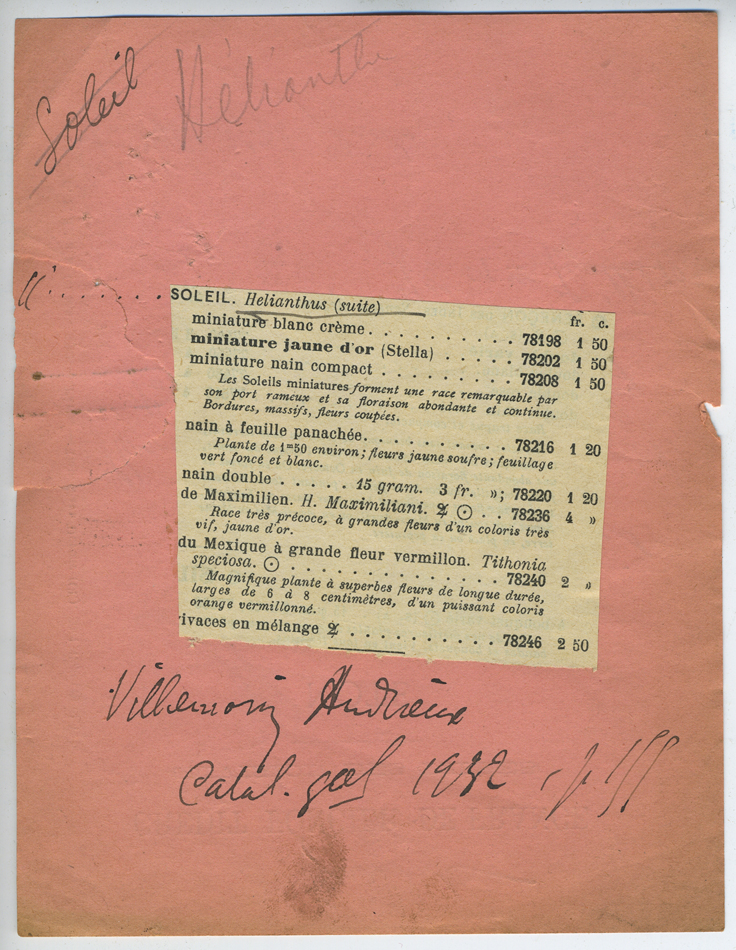 Soleil
Héliante
« . . . . . . . SOLEIL. Helianthus (suite)
fr. c.
miniature blanc crème . . . . . . . . . . 78198 1 50
miniature jaune d'or (Stella) . . . . . . 78202 1 50
miniature nain compact . . . . . . . . . 78208 1 50
Les Soleils miniatures forment une race remarquable par
son port rameux et sa floraison abondante et continue.
Bordures, massifs, fleurs coupées.
nain à feuille panachée. . . . . . . . . . . 78216 1 20
Plante de 1m50 environ; fleurs jaune soufre; feuillage
vert foncé et blanc.
nain double . . . . . 15 gram. 3 fr. »; 78220 1 20
de Maximilien. H. Maximiliani. ♃ ☉ . . 78236 4 »
Race très précoce, à grandes fleurs d'un coloris très
vif, jaune d'or.
du Mexique à grande fleur vermillon. Tithonia
speciosa. ☉ . . . . . . . . . . . . . . . . 78240 2 »
Magnifique plante à superbes fleurs de longue durée,
larges de 6 à 8 centimètres, d'un puissant coloris
orange vermillonné.
vivaces en mélange ♃ . . . . . . . . . . . 78246 2 50
Villemorin Andrieux
Catal. gal 1932